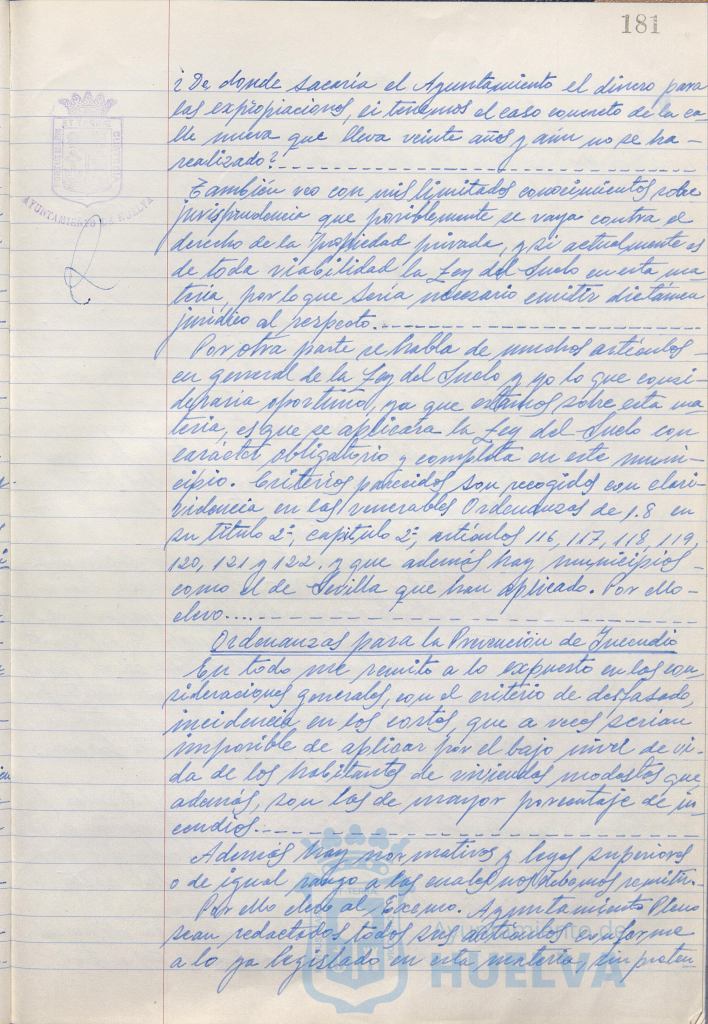 181
¿De donde sacaría el Ayuntamiento el dinero para
las expropiaciones, si tenemos el caso concreto de la ca-
lle nueva que lleva veinte años y aún no se ha-
realizado?
También veo con mis limitados conocimientos sobre
jurisprudencia que posiblemente se vaya contra el
derecho de la propiedad privada, y si actualmente es
de toda viabilidad la Ley del Suelo en esta ma-
teria, por lo que sería necesario emitir dictámen
jurídico al respecto.
Por otra parte se habla de muchos artículos-
en general de la Ley del Suelo y yo lo que consi-
deraría oportuno, ya que estamos sobre esta ma-
teria, es que se aplicara la Ley del Suelo con
carácter obligatorio y completa en este muni-
cipio. Criterios parecidos son recogidos con clari-
videncia en las venerables Ordenanzas de 1.8 en
su título 2º, capítulo 2º, artículos 116, 117, 118, 119,
120, 121 y 122. y que además hay municipios-
como el de Sevilla que han aplicado. Por ello-
elevo....
Ordenanzas para la Prevención de Incendio
En todo me remito a lo expuesto en las con-
sideraciones generales, con el criterio de desfasado,
incidencia en los costos que a veces serían
imposible de aplicar por el bajo nivel de vi-
da de los habitantes de viviendas modestas que
además, son las de mayor porcentaje de in-
cendios.
Además hay normativas y leyes superiores
o de igual rango a las cuales nos debemos remitir.-
Por ello elevo al Excmo. Ayuntamiento Pleno
sean redactados todos sus artículos conforme
a lo ya legislado en esta materia, sin preten-
AYUNTAMIENTO DE HUELVA
Ayuntamiento de
HUELVA